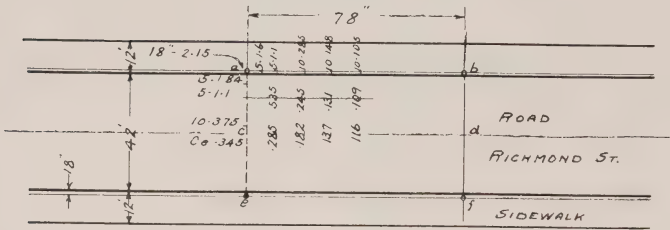 78"
12'
18"-2.15
a
5-1.6
5-1.1
10-.285
10-.148
10-.105
b
5-1.84
5-1.1
.535
.245
.131
.109
10-.375
c
d
ROAD
Ce-.345
.285
.182
.137
.116
42'
RICHMOND ST.
18"
e
f
12'
SIDEWALK